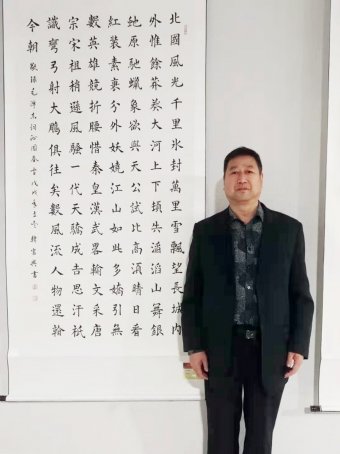 北國風光千里冰封萬里雪飄望長城内
外惟餘莽莽大河上下頓失滔滔山舞銀
蛇原馳蠟象欲與天公試比高須晴日看
紅裝素裹分外妖嬈江山如此多嬌引無
數英雄競折腰惜秦皇漢武畧輸文采唐
宗宋祖稍遜風騷一代天驕成吉思汗祇
識彎弓射大鵰俱往矣數風流人物還看
今朝 敬録毛澤東詞沁園春雪戊戌年 書